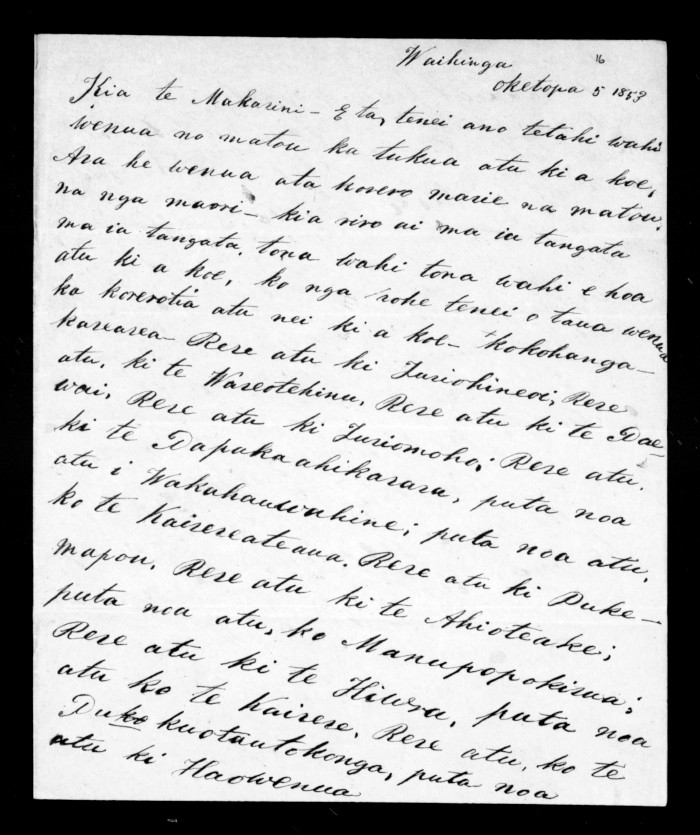 Waihinga 16
oketopa 5 1853
Kia te Makarini - E ta, tenei ano tetahi wahi
wenua no matou ka tukua atu ki a koe,
Ara he wenua ata korero marie na matou,
na nga maori - kia riro ai ma ia tangata
ma ia tangata, tona wahi tona wahi e hoa
atu ki a koe, ko nga rohe tenei o taua wenua
ka korerotia atu nei ki a koe - Kokohanga-
karearea - Rere atu ki Turiohineoi, Rere
atu, ki te Wareotehinu, Rere atu ki te Pae-
wai, Rere atu ki Turiomoho; Rere atu,
ki te Papukaahikarara, puta noa
atu i Wakahauwahine; puta noa atu,
ko te Kairereateaua. Rere atu ki Puke-
mapou, Rere atu ki te Ahioteake;
puta noa atu, ko Manupopokirua;
Rere atu ki te Hiwera, puta noa
atu ko te Kairere, Rere atu, ko te
Puke kuotautokonga, puta noa
atu ki Haowenua